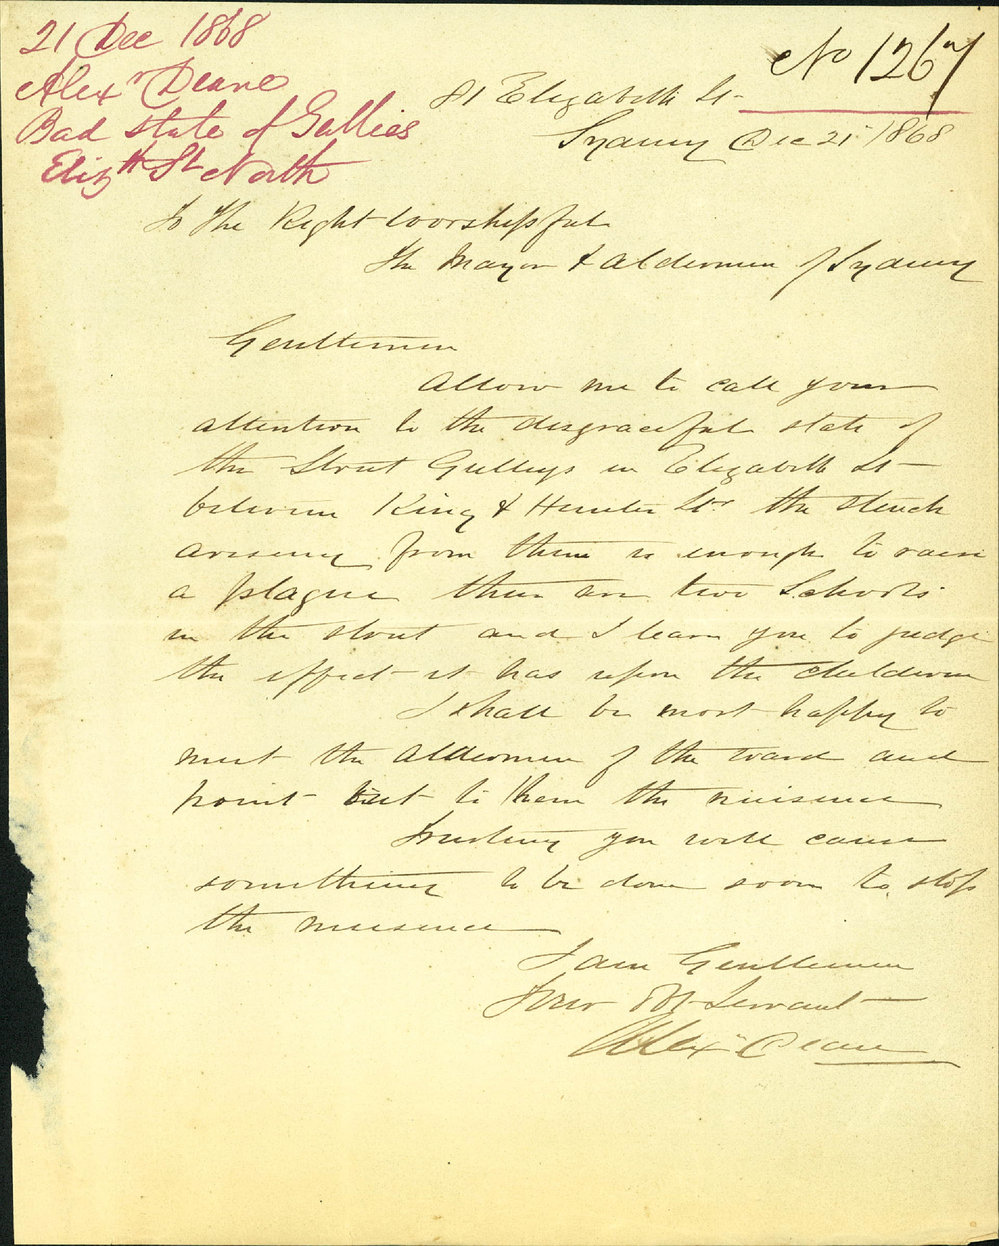 21 Dec 1868
Alexr Deane
Bad state of Gullies
Elizth St North
No 1267
81 Elizabeth St
Sydney Dec 21 1868
To The Right Worshipful
The Mayor & Aldermen of Sydney
Gentlemen
Allow me to call your
attention to the disgraceful state of
the Street Gulleys in Elizabeth St
between King & Hunter Sts the stench
arising from them is enough to raise
a plague there are two Schools
in the street and I leave you to judge
the effect it has upon the children
I shall be most happy to
meet the Aldermen of the ward and
point out to them the nuisence
Trusting you will cause
something to be done soon to stop
the nuisence
I am Gentlemen
Your Obt Servant
Alexr Deane